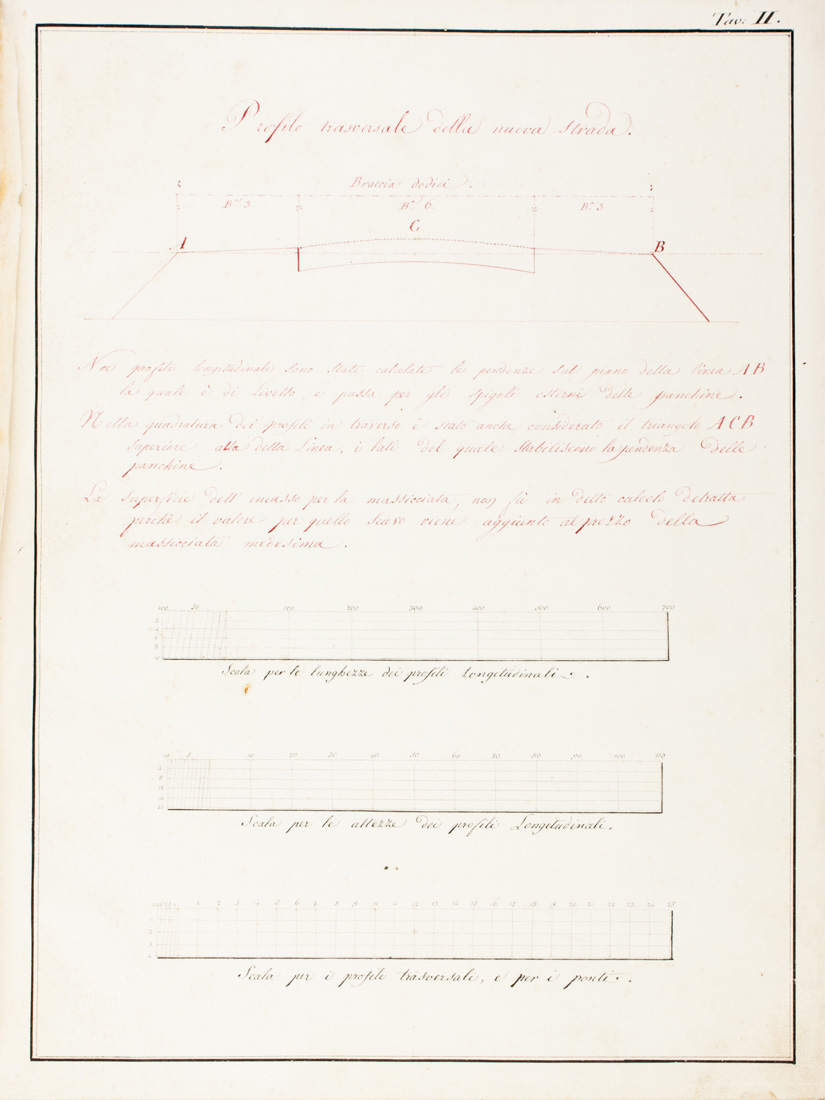 Tav: II.
Profilo trasversale della nuova strada.
Braccia dodici.
B.ª 3 B.ª 6. B.ª 3
C
A B
Nei profili longitudinali sono state calcolate le pendenze sul piano della linea AB
la quale è di Livello, e passa per gli spigoli esterni delle panchine.
Nella quadratura dei profili in traverso è stato anche considerato il triangolo ACB
superiore alla detta Linea, i lati del quale stabiliscono la pendenza delle
panchine.
La superficie dell'incasso per la massicciata, non fù in detto calcolo detratta
perchè il valore per quello scavo viene aggiunto al prezzo della
massicciata medesima.
100 50 100 200 300 400 500 600 700
Scala per le lunghezze dei profili Longitudinali.
10 5 10 20 30 40 50 60 70 80 90 100 110
Scala per le altezze dei profili Longitudinali.
1 2 3 4 5 6 7 8 9 10 11 12 13 14 15 16 17 18 19 20 21 22 23 24 25
Scala per i profili trasversali, e per i ponti.